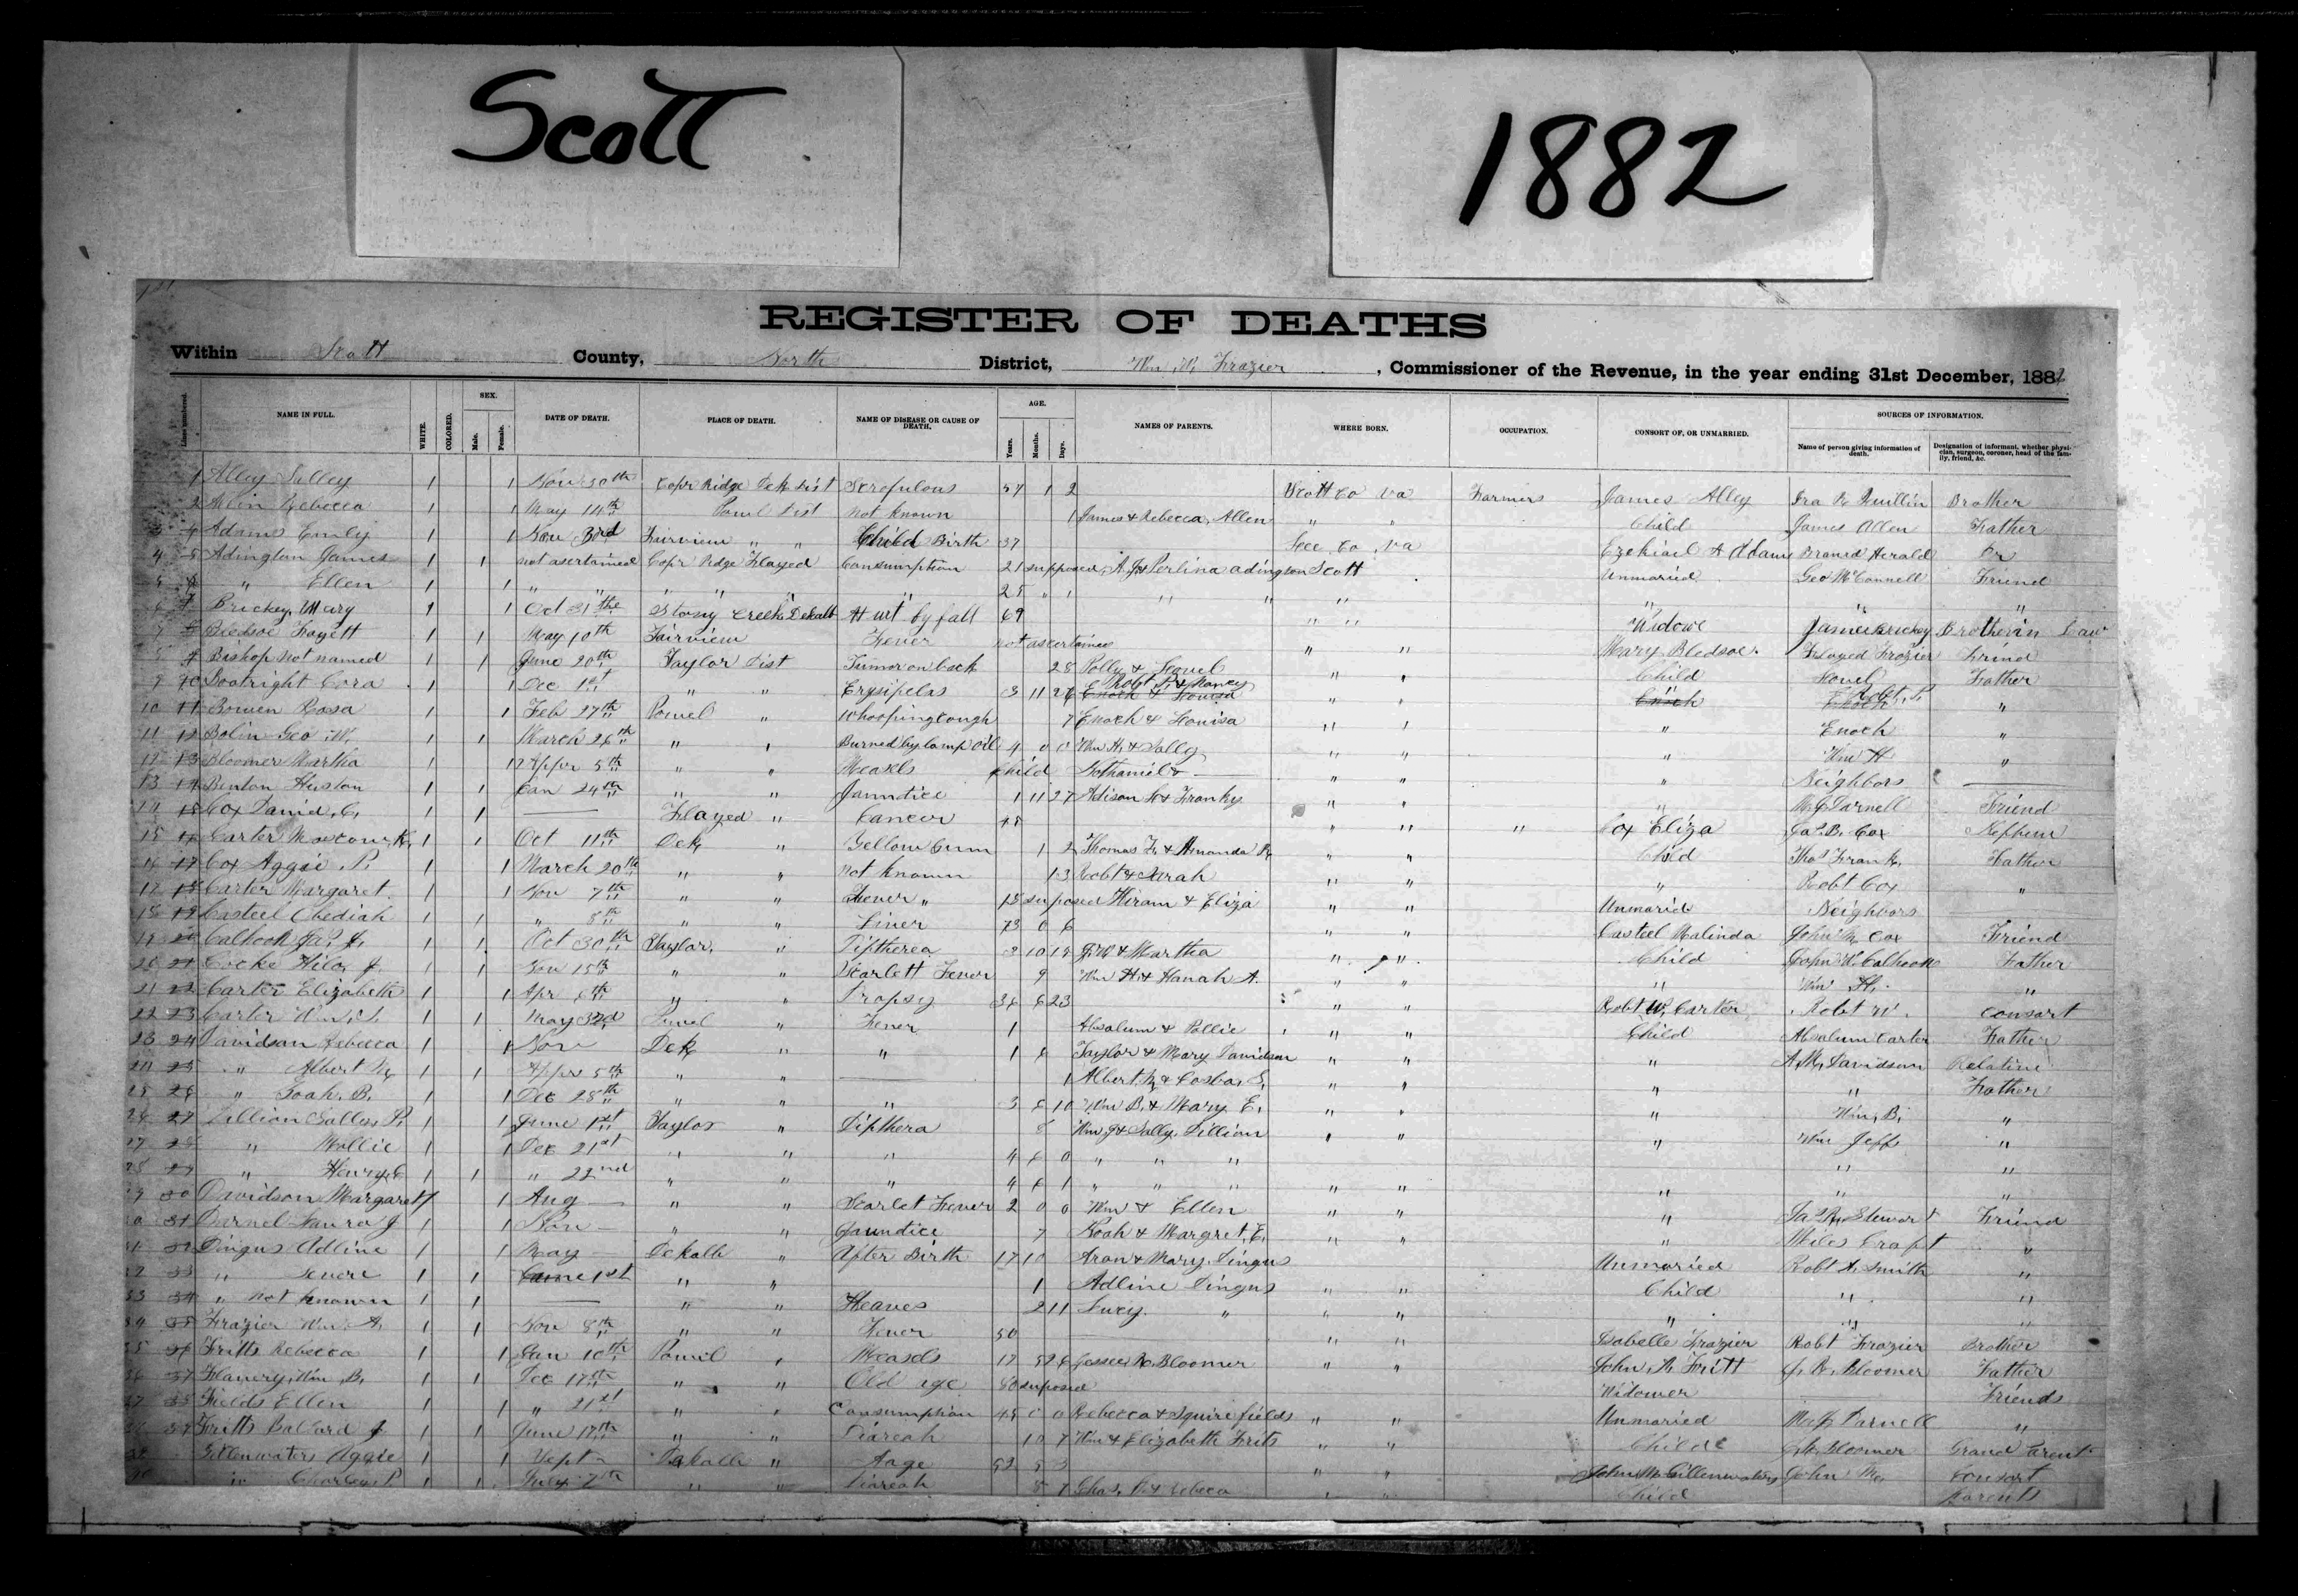 Scott
1882
REGISTER OF DEATHS
Within Scott County, North District, Wm W. Frazier, Commissioner of the Revenue, in the year ending 31st December, 1882
Lines numbered. NAME IN FULL. WHITE. COLORED. SEX. Male. Female. DATE OF DEATH. PLACE OF DEATH. NAME OF DISEASE OR CAUSE OF DEATH. AGE. Years. Months. Days. NAMES OF PARENTS. WHERE BORN. OCCUPATION. CONSORT OF, OR UNMARRIED. SOURCES OF INFORMATION. Name of person giving information of death. Designation of informant, whether physician, surgeon, coroner, head of the family, friend, &c.
1 Alley Salley 1 1 Nov 30th Copr Ridge Dek Dist Scrofulous 57 1 2 Scott Co Va Farmers James Alley Ira R Quillin Brother
2 Allin Rebecca 1 1 May 14th Powel Dist not known 1 James & Rebecca Allen " " Child James Allen Father
Adams Emily 1 1 Nov 3rd Fairview " " Child Birth 37 Lee Co Va Ezekiael A Adams Herald
4 5 Adington James 1 1 not asertained Copr Ridge Flayed Consumption 21 supposed A. J & Perlina adington Scott Unmaried Geo McConnell Friend
" Ellen 1 1 " " " 25 " 1 " " " " "
Brickey Mary 1 1 Oct 31 Stony Creek Dekalb Hurt by fall 69 " " Widowe James Brickey Brother in Law
7 Bledsoe Fayett 1 1 May 10th Fairview Fever not ascertained " " Mary Bledsoe Flayed Frazier Frind
Bishop not named 1 1 June 20th Taylor Dist Tumor on back 28 Polly & " " Child Father
9 10 Boatright Cora 1 1 Dec 1st " " Erysipelas 3 11 26 Robt & Nancy " " Robt. P. "
10 11 Bowen Rosa 1 1 Feb 27th Powel " Whooping Cough 7 Enoch & Louisa " " " Enoch "
11 12 Bolin Geo W. 1 1 March 26th " " Burned by lamp oil 4 0 0 Wm H. & Sally " " " Wm H "
12 13 Bloomer Martha 1 1 Appr 5th " " Measls Child Nathaniel & " " " Neighbors
13 14 Benton Huston 1 1 Jan 24th " " Jaundice 1 11 27 Adison & Franky " " " Darnell Friend
14 15 Cox David C. 1 1 Flayed " Cancer " " " Cox Eliza Jas. B. Cox Nephew
15 16 Carter 1 1 Oct 11th Dek " Yellow Gum 1 2 Thomas F. & Amanda " " Child Thos Frank. Father
16 17 Cox Aggie P. 1 1 March 20th " " not known 1 3 Robt & Sarah " " " Robt Cox "
17 18 Carter Margaret 1 1 Nov 7th " " Fever " 15 suposed Hiram & Eliza " " Unmarid Neighbors
18 19 Casteel Obediah 1 1 " 8th " " Liver 73 0 6 " " Casteel Malinda John Cox Friend
19 20 Calhoon Jas. 1 1 Oct 30th Taylor " Diptherea 3 10 19 J. W & Martha " " Child John W. Calhoon Father
20 21 Cocke 1 1 Nov 15th " " Scarlett Fever 9 Wm H & Hanah A. " " " Wm H. "
21 22 Carter Elizabeth 1 1 Apr 6th " " Dropsy 6 23 " " Robt W. Carter Robt W. Consort
22 23 Carter Wm. 1 1 May Powel " Fever 1 Absalum & Pollie " " Child Absalum Carter Father
23 24 Davidson Rebecca 1 1 Nov Dek " " 1 6 Taylor & Mary Davidson " " " Davidson Relative
24 25 " Albert 1 1 Appr 5th " " 1 Albert & " " " " Father
25 26 " Noah B. 1 1 Dec 28th " " " 3 6 10 Wm B. & Mary E. " " " Wm. B. "
26 27 Dillion 1 1 June 1st Taylor " Dipthera 8 Wm J & Sally Dillion " " " Wm Jeff "
27 28 " Mollie 1 1 Dec 21st " " " 4 6 0 " " " " "
28 29 " Henry 1 1 " 22nd " " " 4 6 1 " " " " " " " "
29 30 Davidson Margaret 1 1 Aug " " Scarlet Fever 2 0 0 Wm & Ellen " " " Jas Stewart Friend
31 Darnel Laura J 1 1 Nov " " Jaundice 7 Noah & Margret E. " " " Miles Craft "
Dingus Adline 1 1 May Dekalb " After Birth 17 10 Aron & Mary Dingus Unmaried Robt A. Smith "
33 " 1 1 June 1st " " 1 Adline Dingus " " Child " "
34 " not known 1 1 " " Heaves 2 11 Lucy " " " " " "
35 Frazier Wm. A. 1 1 Nov 8th " " Fever 50 " " Isabelle Frazier Robt Frazier Brother
36 Fritts Rebecca 1 1 Jan 10th Powil " Measels 17 Jessee R. Bloomer " " John R Fritt J. R. Bloomer Father
37 Flanery Wm. B. 1 1 Dec 17th " " Old age 80 suposed Widower Friends
38 Fields Ellen 1 1 " 21st " " Consumption 45 0 0 Rebecca & Squire fields " " Unmaried Darnell "
39 Fritts Ballard J 1 1 June 17th " " Diareah 10 7 Wm & Elizabeth Frits " " Childe Bloomer Grand Parent
Gillenwaters Aggie 1 1 Sept Dekalb " Aage " " John M Gillenwaters John M. Consort
" Charley P. 1 1 July 7th " " Diareah 8 7 Chas. & Rebeca " " Child Parents